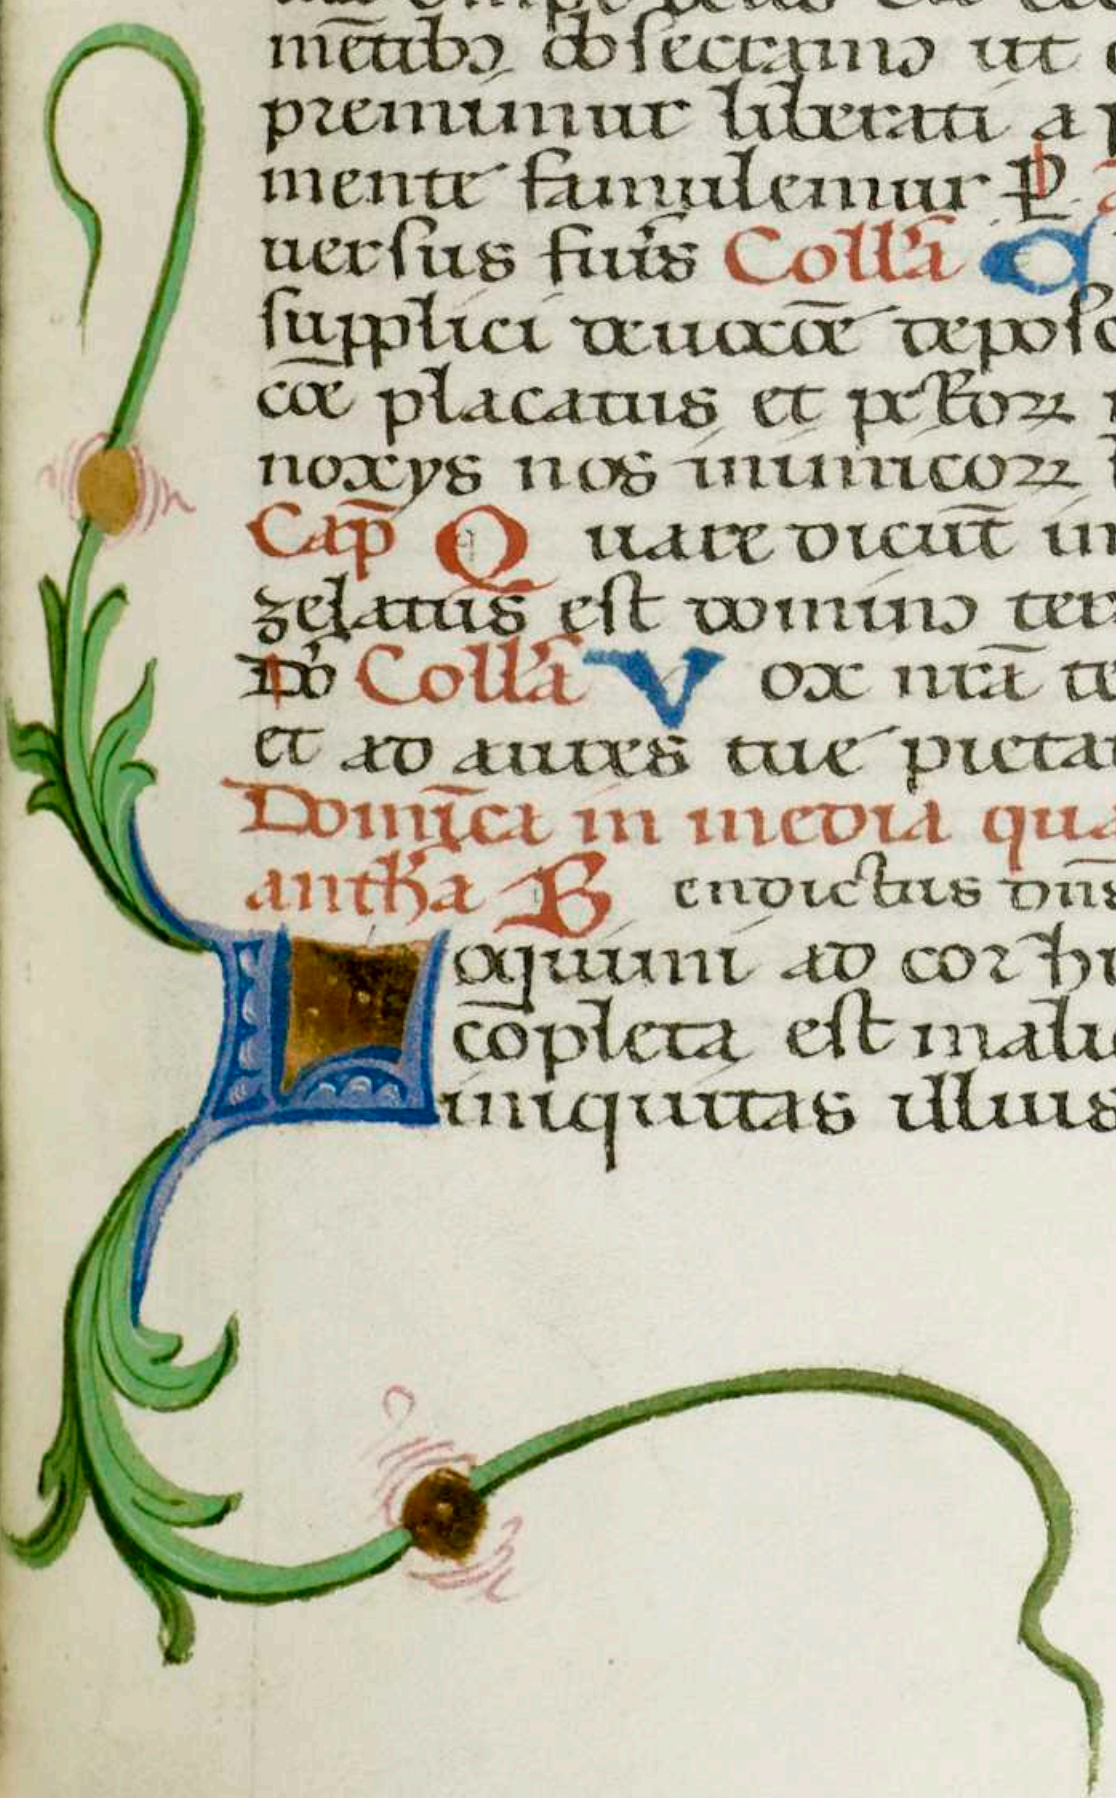 mētibꝯ obsecramꝯ ut
premimur liberati a
mente famulemur
uersus fiūs Collā
supplici deuocōe deposc
cōe placatus et pctoꝝ
noxys nos inimicoꝝ
Cap̄ Quare dicūt in
zelatus est dominꝯ ter
Dō Collā Vox nrā te
et ad aures tue pieta
Domīca in media qua
antħa Bendictus dn̄s
Loquimi ad cor hi
cōpleta est mali
iniquitas illius